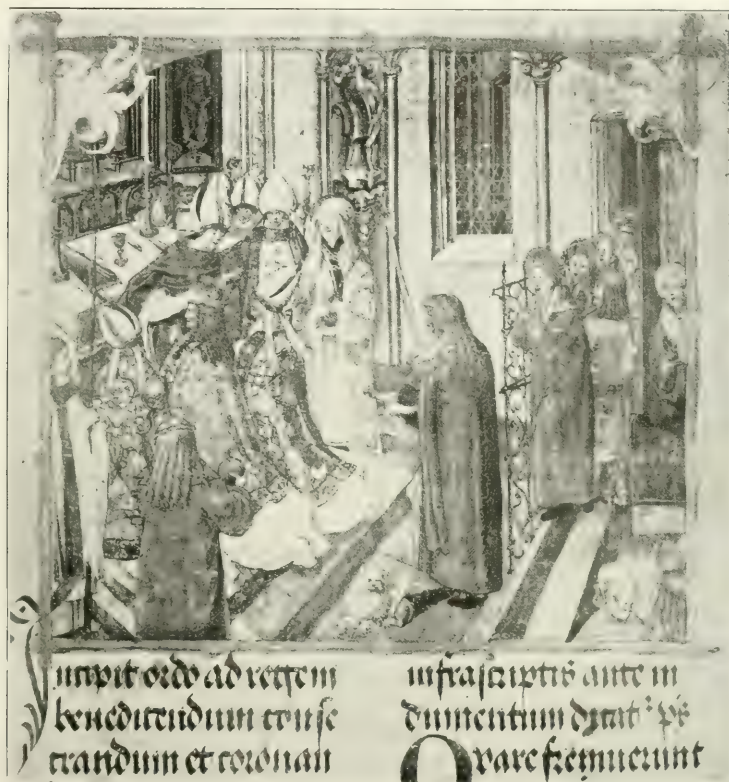 Incipit ordo ad regem
benedicendum conse
crandum et coronan
infrascriptis ante in
dumentum dicat ps
Quare fremuerunt